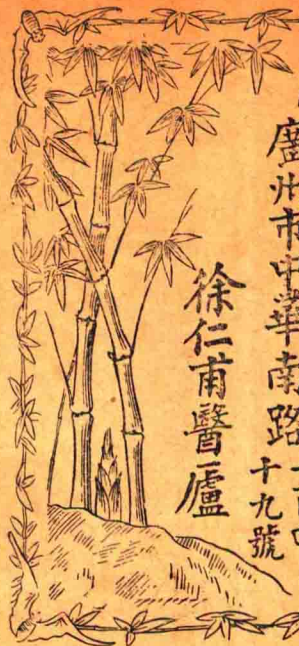 廣州市中華南路
十九號
徐仁甫醫廬